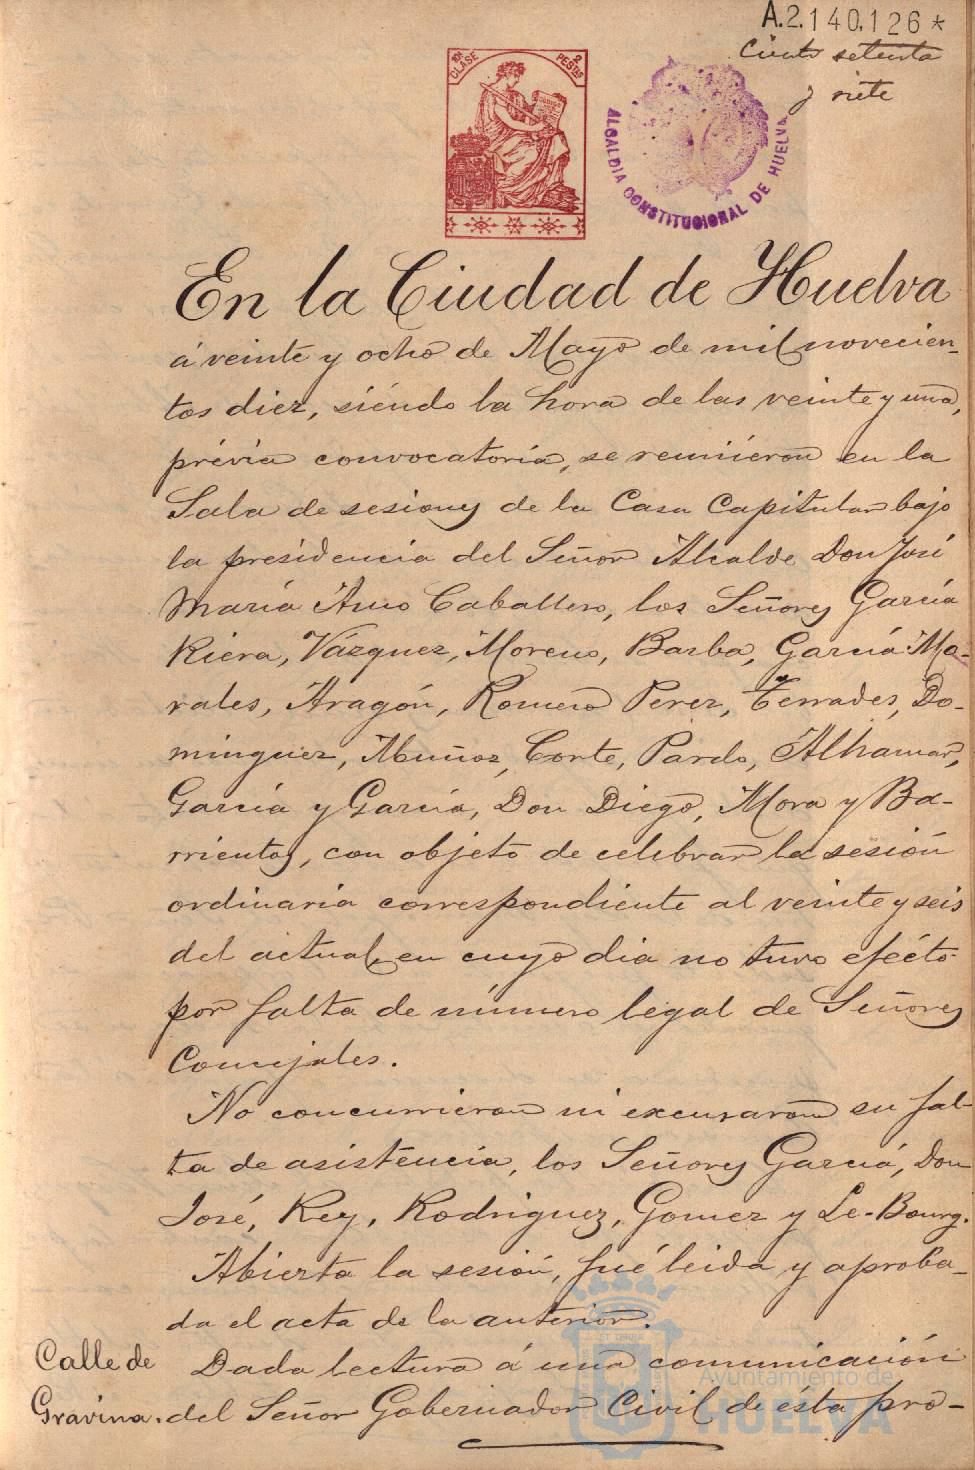 A.2.140,126*
Ciento setenta
y siete
10ª CLASE 2 PESTAS
ALCALDIA CONSTITUCIONAL DE HUELVA
En la Ciudad de Huelva
á veinte y ocho de Mayo de mil novecien-
tos diez, siéndo la hora de las veinte y una,
prévia convocatoria, se reuniéron en la
Sala de sesiones de la Casa Capitular bajo
la presidencia del Señor Alcalde Don José
María Amo Caballero, los Señores García
Riera, Vázquez, Moreno, Barba, García Mo-
rales, Aragón, Romero Perez, Terrades, Do-
minguez, Muñoz, Corte, Pardo, Alhamar,
García y García, Don Diego, Mora y Ba-
rrientos, con objeto de celebrar la sesión
ordinaria correspondiente al veinte y seis
del actual, en cuyo dia no tuvo efécto
por falta de número legal de Señores
Concejales.
No concurrieron ni excusaron su fal-
ta de asistencia, los Señores García, Don
José, Rey, Rodriguez, Gomez y Le-Bourg.
Abierta la sesión, fué leida y aproba-
da el acta de la anterior.
Calle de
Gravina.
Dada lectura á una comunicación
del Señor Gobernador Civil de ésta pro-
Ayuntamiento de
HUELVA